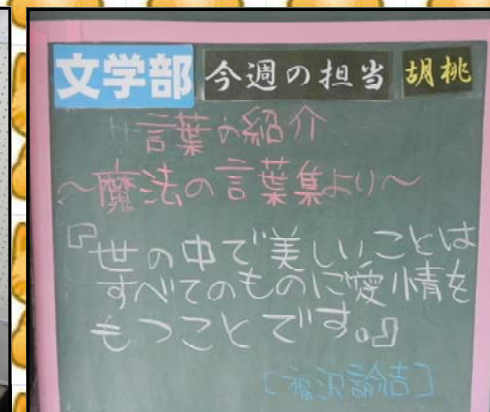 文学部 今週の担当 胡桃
言葉の紹介
～魔法の言葉集より～
『世の中で美しいことは
すべてのものに愛情を
もつことです。』
[福沢諭吉]